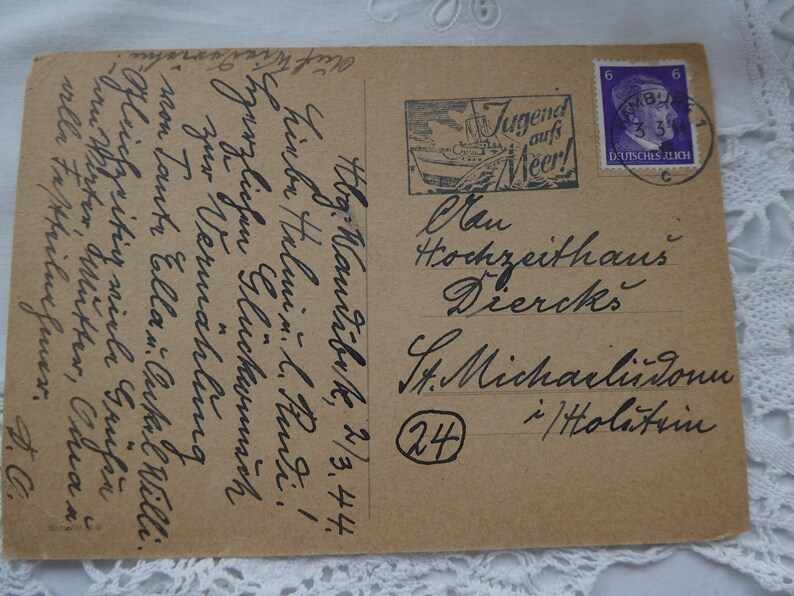 Hbg. Wandsbek, 2/3.44.
Liebe Helmi u. l. Rudi!
Herzlichen Glückwunsch
zur Vermählung
von Tante Ella u. Onkel Willi.
Gleichzeitig viele Grüße
an Vater, Mutter, Oma u.
alle Festteilnehmer.
D. O.
Auf Wiedersehn!
Jugend
aufs
Meer!
6 6
DEUTSCHES REICH
HAMBURG 1
3.3.44
c
An
Hochzeithaus
Diercks.
St. Michaelisdonn
i/Holstein
24